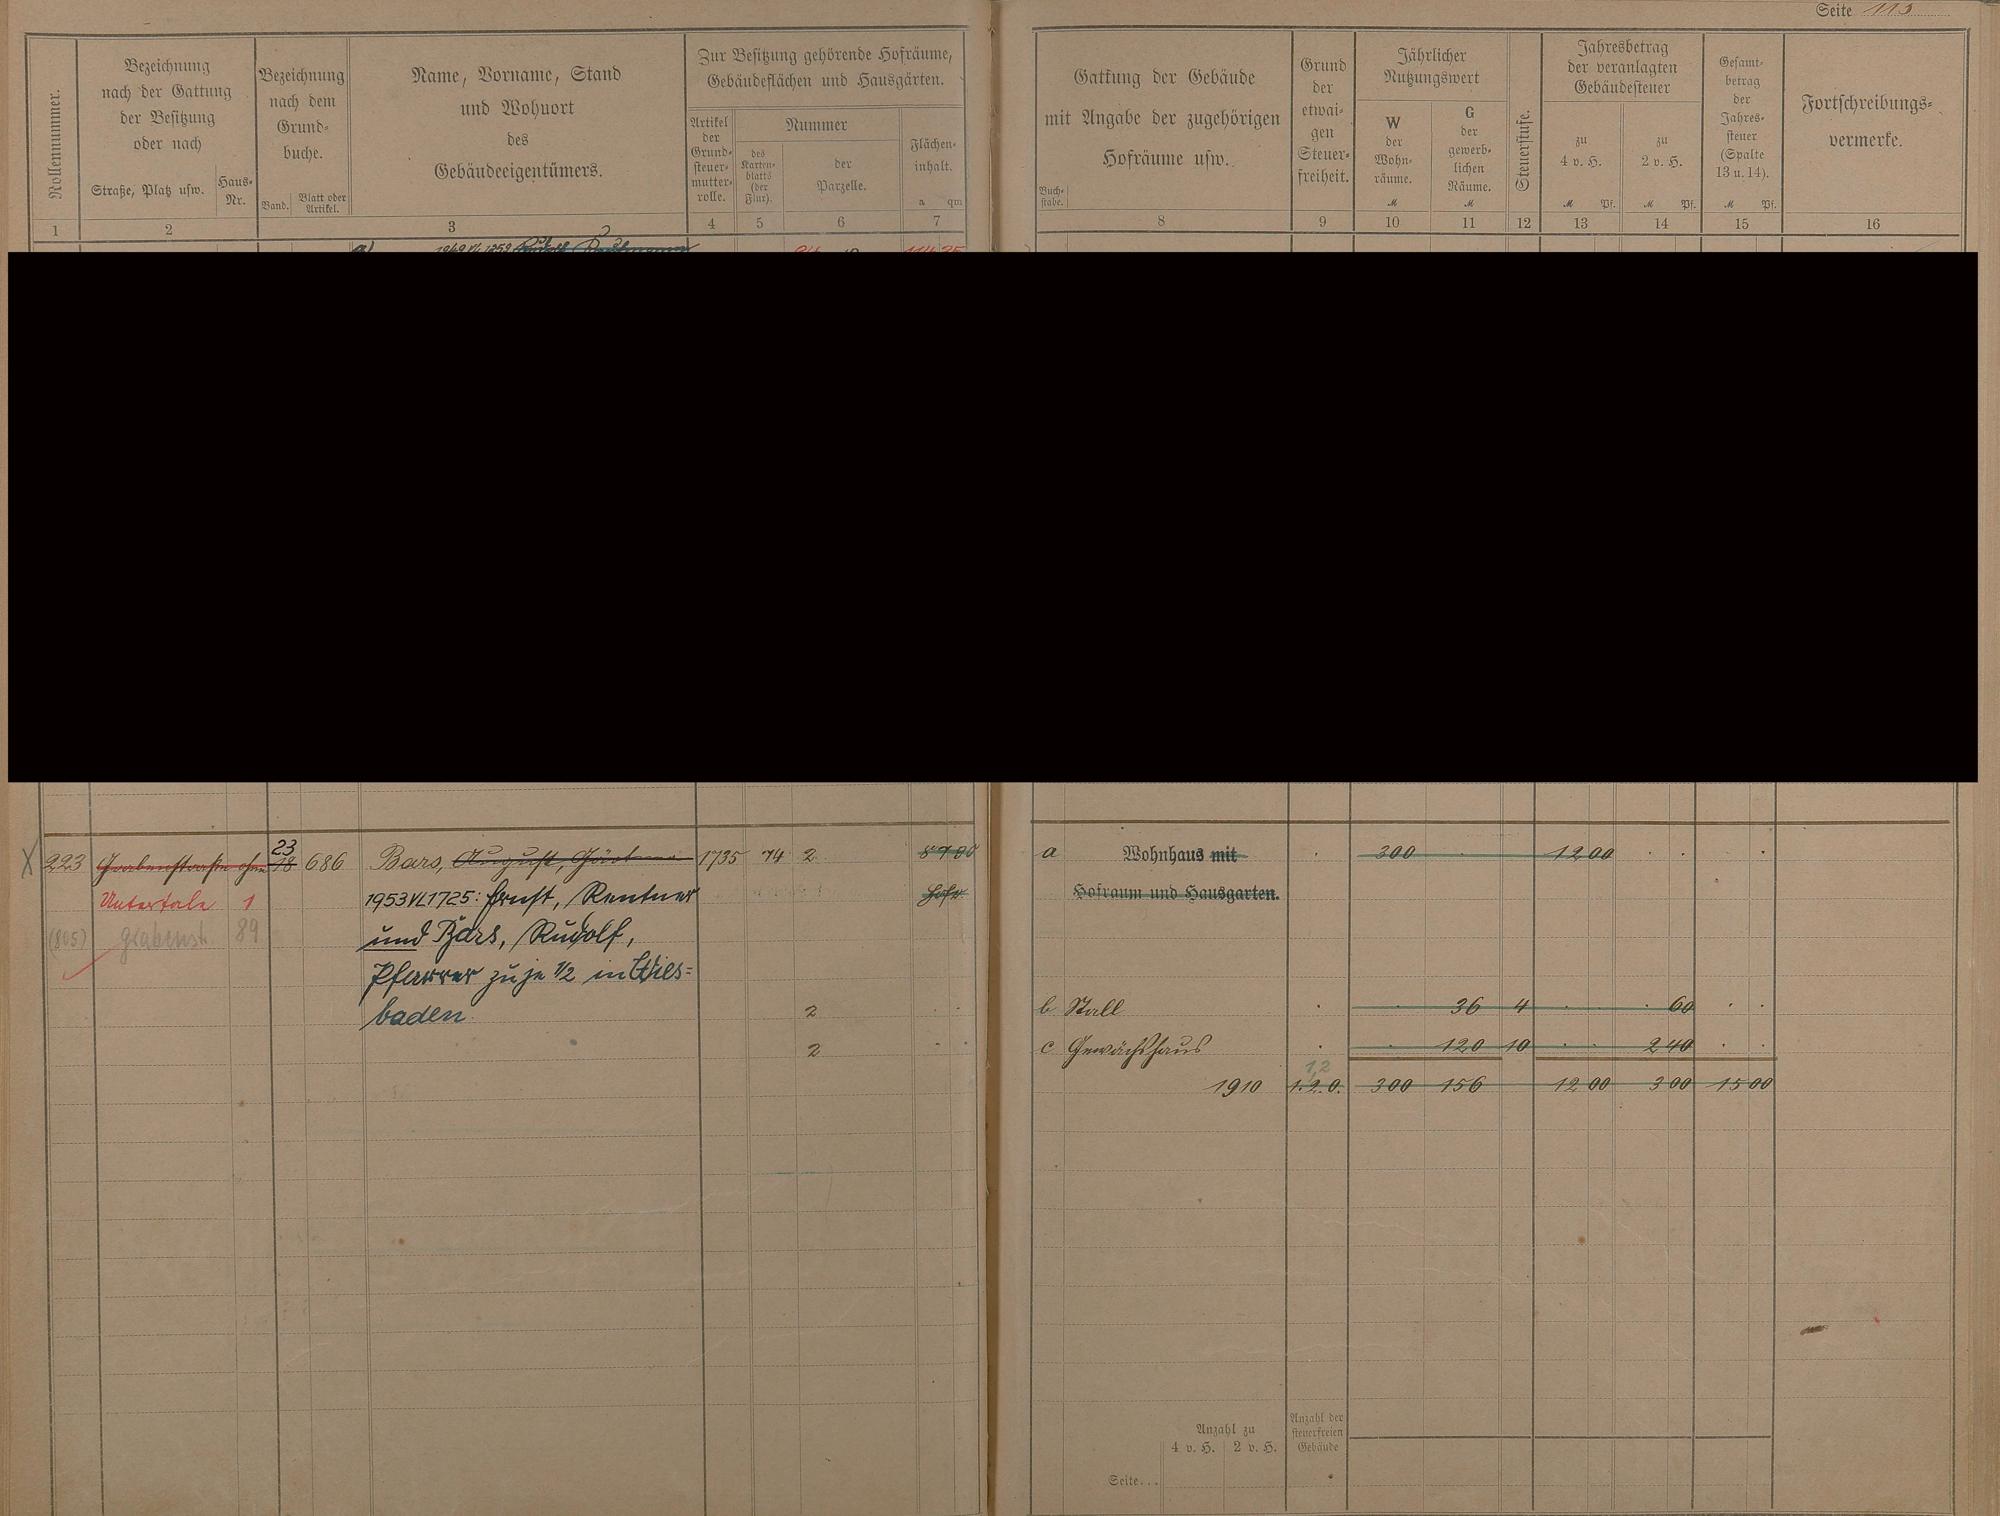 Seite 113
Rollennummer.
Bezeichnung
nach der Gattung
der Besitzung
oder nach
Straße, Platz usw.
Haus-
Nr.
Bezeichnung
nach dem
Grund-
buche.
Band.
Blatt oder
Artikel.
Name, Vorname, Stand
und Wohnort
des
Gebäudeeigentümers.
Zur Besitzung gehörende Hofräume,
Gebäudeflächen und Hausgärten.
Artikel
der
Grund-
steuer-
mutter-
rolle.
Nummer
des
Karten-
blatts
(der
Flur).
der
Parzelle.
Flächen-
inhalt.
a qm
Gattung der Gebäude
mit Angabe der zugehörigen
Hofräume usw.
Buch-
stabe.
Grund
der
etwai-
gen
Steuer-
freiheit.
Jährlicher
Nutzungswert
W
der
Wohn-
räume.
M
G
der
gewerb-
lichen
Räume.
M
Steuerstufe.
Jahresbetrag
der veranlagten
Gebäudesteuer
zu
4 v. H.
M Pf.
zu
2 v. H.
M Pf.
Gesamt-
betrag
der
Jahres-
steuer
(Spalte
13 u. 14).
M Pf.
Fortschreibungs-
vermerke.
1 2 3 4 5 6 7 8 9 10 11 12 13 14 15 16
a)
223 Grabenstraße ohne 18 686 Bars, August, Gärtner 1735 74 2
23
a Wohnhaus mit 300 12 00
Untertale 1 1953 VL 1725: Ernst, Rentner
Hofraum und Hausgarten.
(805) Grabenst. 89 und Bars, Rudolf,
Pfarrer zu je 1/2 in Wies-
baden. 2 b Stall 36 4 60
2 c Gewächshaus 120 10 2 40
1,2
1910 1.2.0. 300 156 12 00 3 00 15 00
Anzahl zu
4 v. H. 2 v. H.
Anzahl der
steuerfreien
Gebäude
Seite...